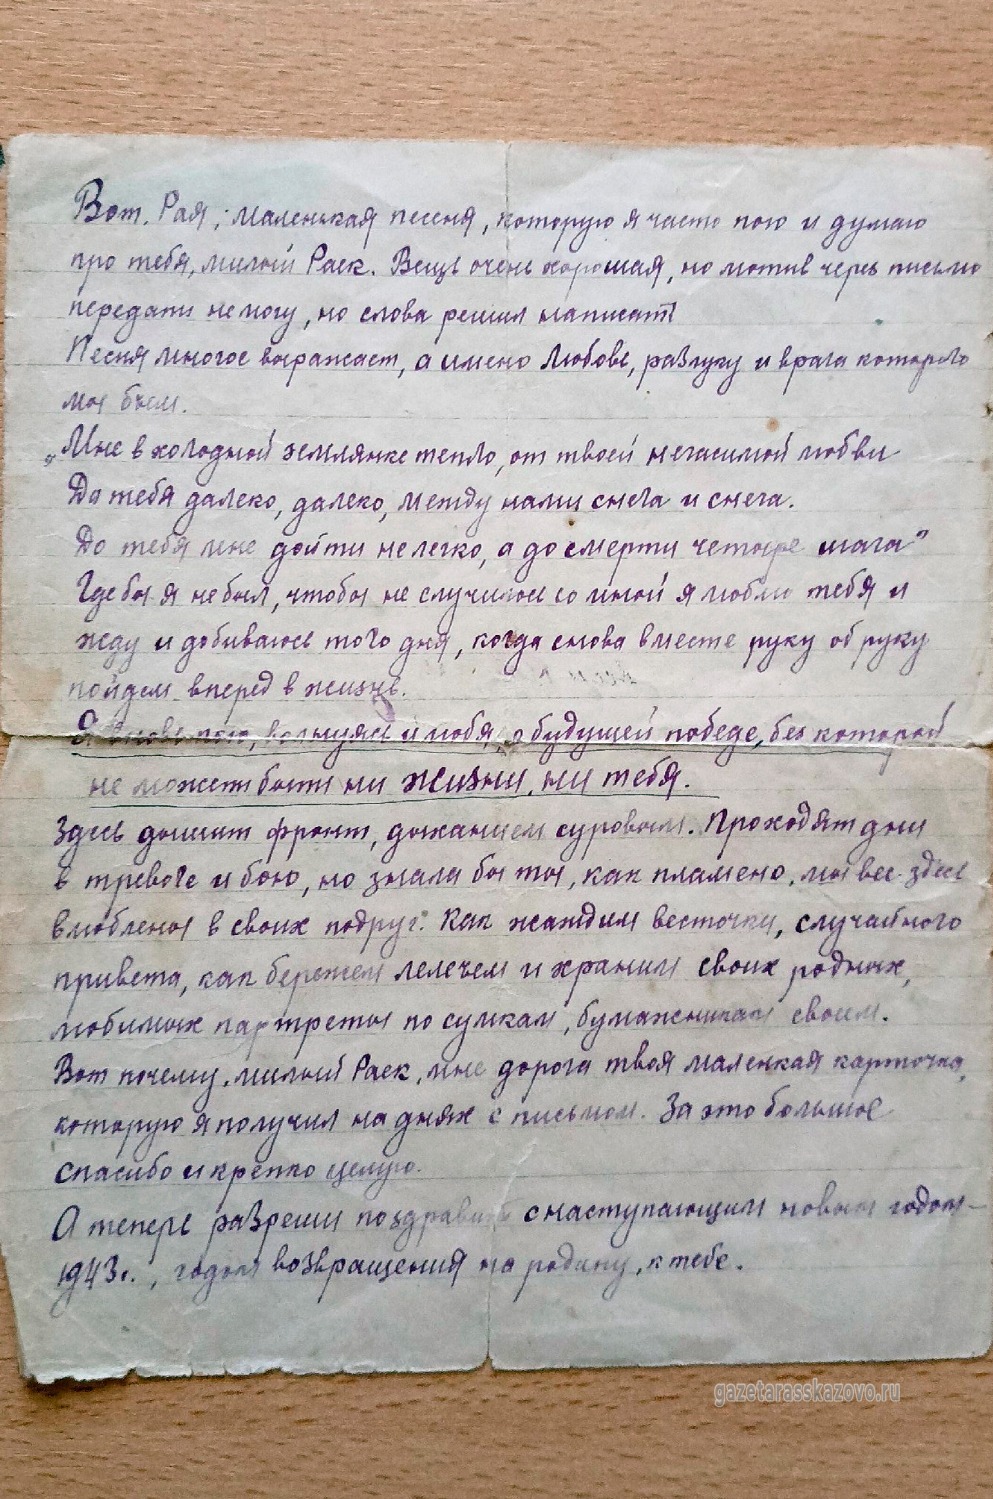 Вот. Рая, маленькая песеня, которую я часто пою и думаю
про тебя, милый Раек. Вещь очень хорошая, но мотив через письмо
передать не могу, но слова решил написать
Песня многое выражает, а имено любовь, разлуку и врага которого
мы бьем.
„Мне в холодной землянке тепло, от твоей негасимой любви
До тебя далеко, далеко, между нами снега и снега.
До тебя мне дойти не легко, а до смерти четыре шага"
Где бы я не был, чтобы не случилось со мной я люблю тебя и
жду и добиваюсь того дня, когда снова вместе руку об руку
пойдем вперед в жизнь.
Я вновь пою, волнуясь и любя, о будущей победе, без которой
не может быть ни жизни, ни тебя.
Здесь дышит фронт, дыханием суровым. Проходят дни
в тревоге и бою, но знала бы ты, как пламено, мы все здесь
влюблены в своих подруг. Как жаждим весточки, случайного
привета, как бережем лелечем и храним своих родных,
любимых партреты по сумкам, бумажникам своим.
Вот почему, милый Раек, мне дорога твоя маленкая карточка,
которую я получил на днях с письмом. За это большое
спасибо и крепко целую.
А теперь разреши поздравить с наступающим новым годом-
1943г., годом возвращения на родину, к тебе.
gazetarasskazovo.ru